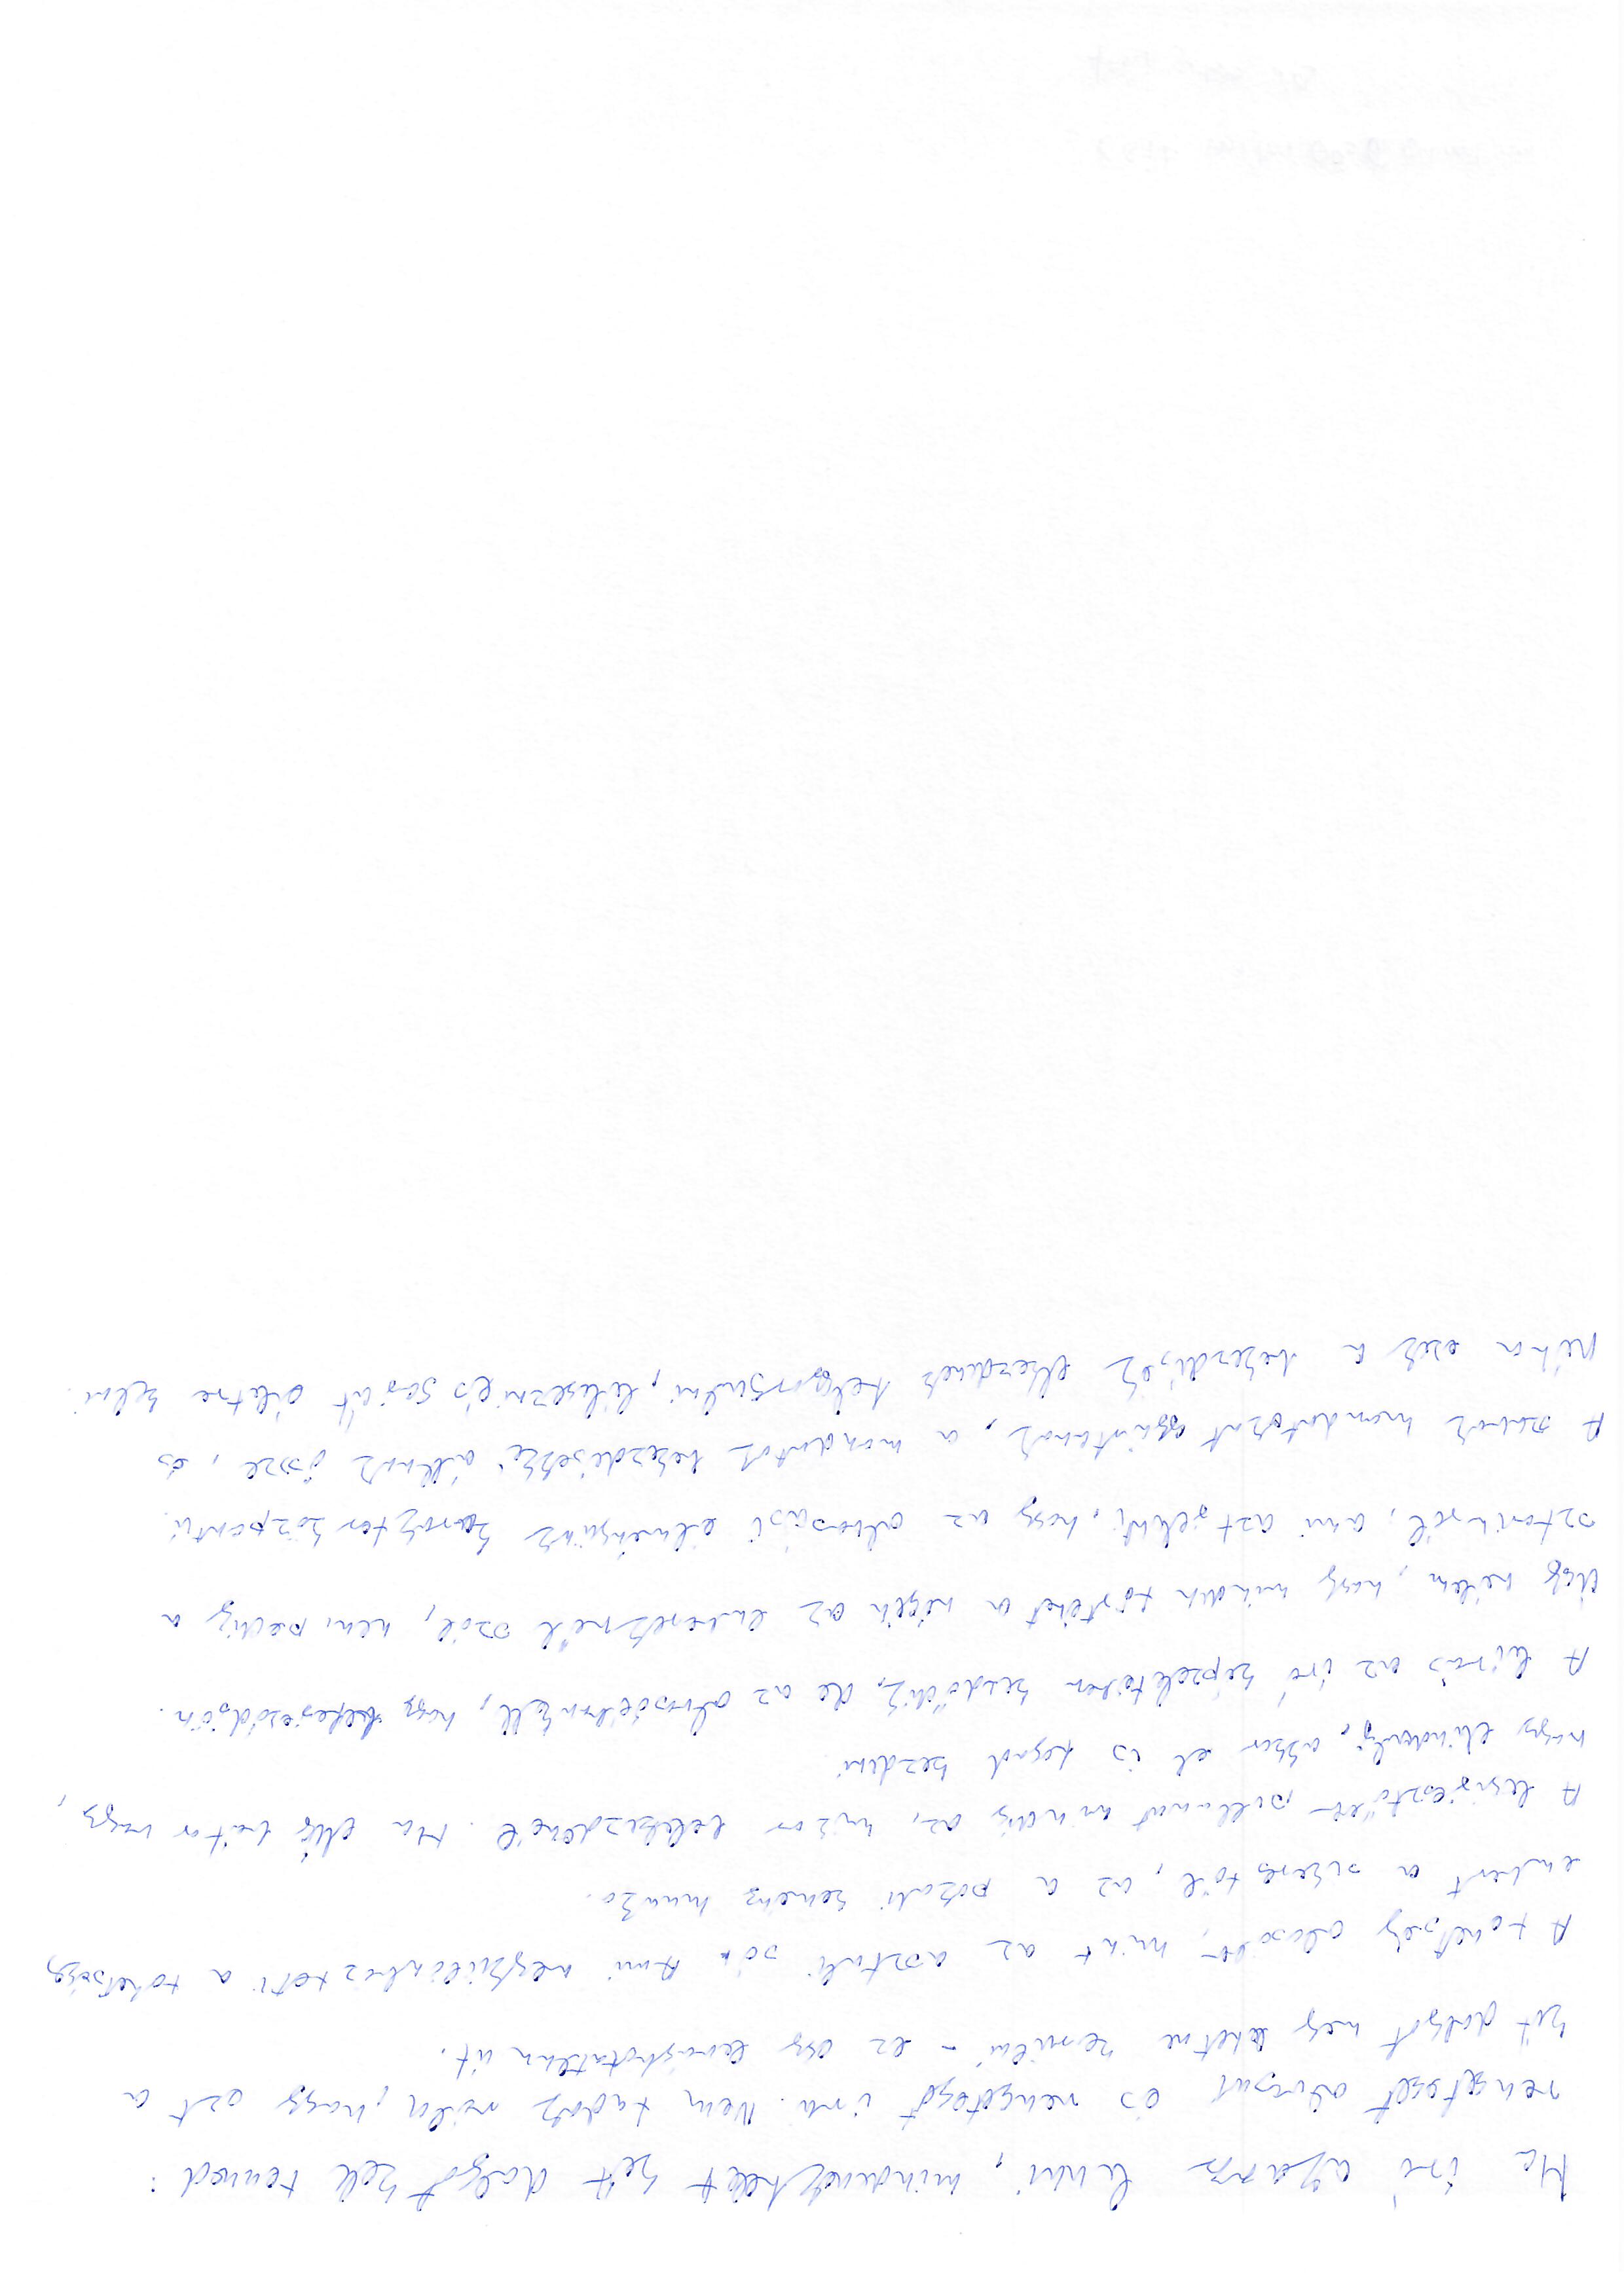 Ha író akarsz lenni, mindenekelőtt két dolgot kell tenned:
rengeteget olvasni és rengeteget írni. Nem tudok róla, hogy ezt a
két dolgot meg lehetne kerülni - ez egy levághatatlan út.
A tehetség olcsóbb, mint az asztali só. Ami megkülönbözteti a tehetséges
embert a sikerestől, az a pokoli kemény munka.
A legijesztőbb pillanat mindig az, mikor belekezdenél. Ha elég bátor vagy,
hogy elindulj, akkor el is fogod kezdeni.
A leírás az író képzeletében kezdődik, de az olvasóéban kell, hogy befejeződjön.
Úgy vélem, hogy minden történet a végén az emberekről szól, nem pedig a
sztorikról, ami azt jelenti, hogy az olvasási élményünk karakter központú.
A szavak mondatokat gyártanak, a mondatok bekezdésekké állnak össze, és
néha ezek a bekezdések elkezdenek felgyorsulni, lélegezni és saját életre kelni.